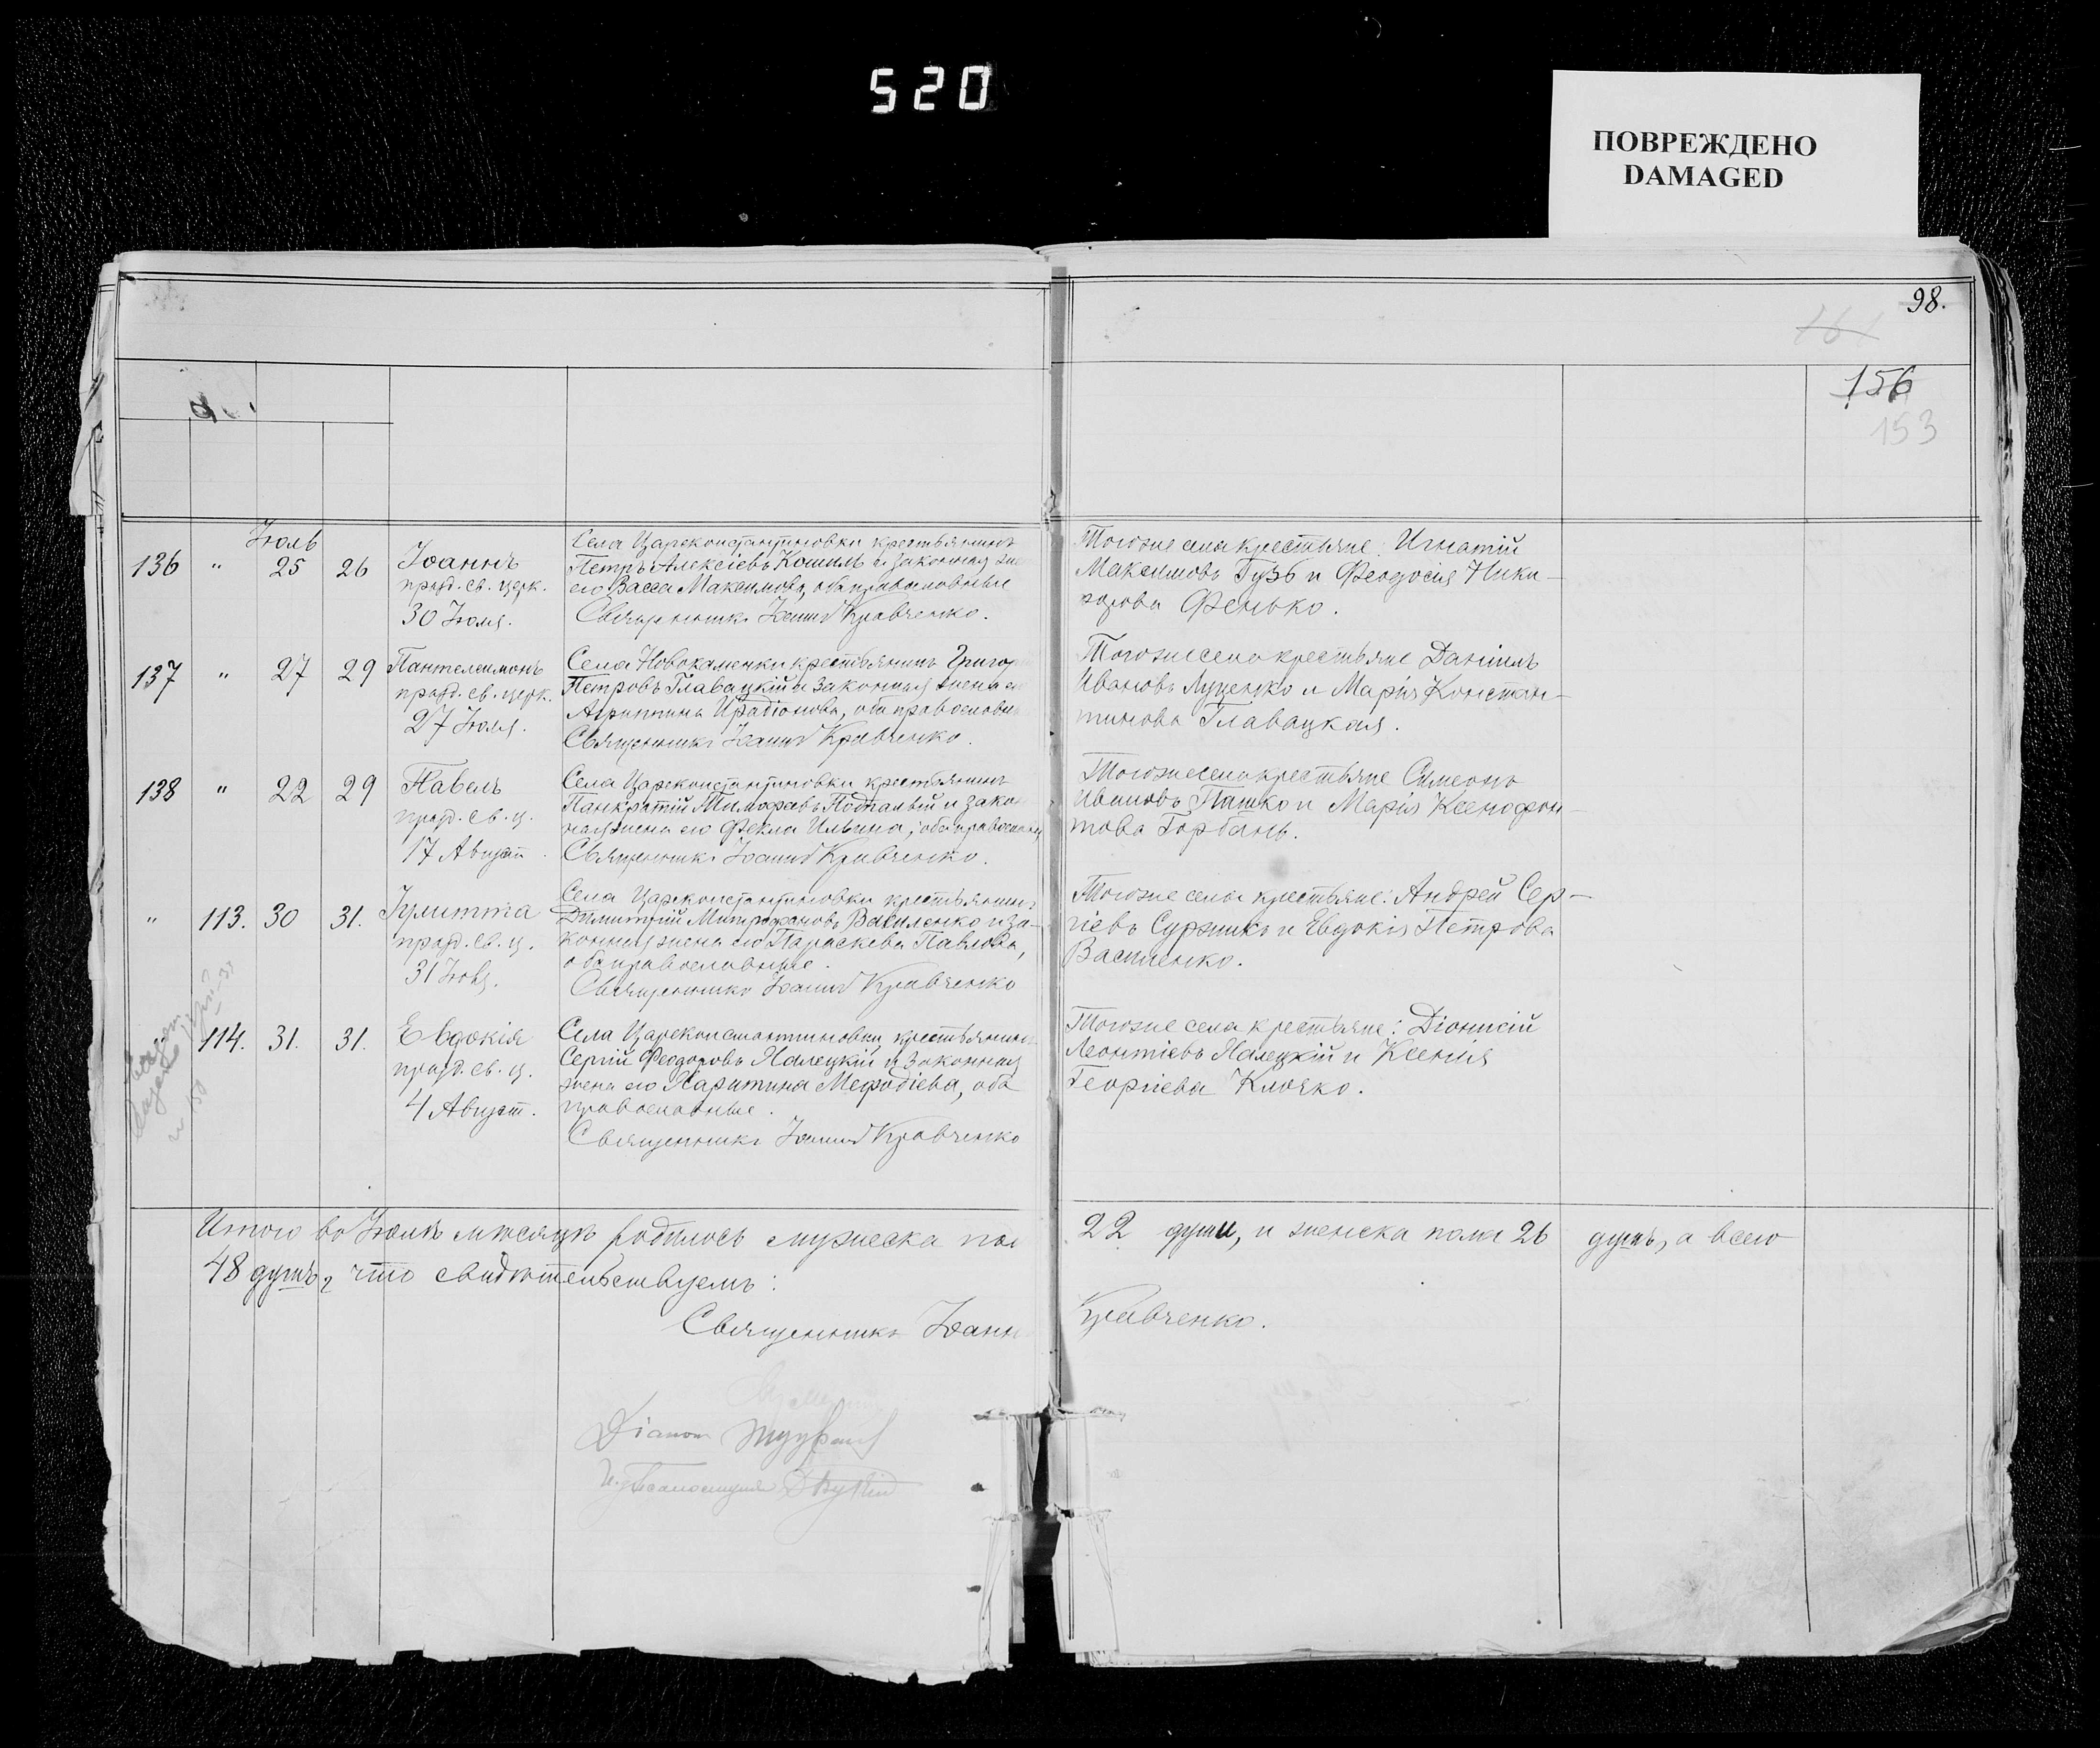 520
ПОВРЕЖДЕНО
DAMAGED
98.
156
153
Іюль
136 " 25 26 Іоаннъ
празд. св. церк.
30 Іюля.
Села Царєконстантиновки крестьянинъ
Петръ Алексіевъ Кошиль и законная
его Васса Максимова, оба православные
Священникъ Іоаннъ Кравченко.
Тогоже села крестьяне: Игнатій
Максимовъ Гузь и Феодосія Ники-
форова Фенько.
137 " 27 29 Пантелеимонъ
празд. св. церк.
27 Іюля.
Села Новокаменки крестьянинъ
Петровъ Главацкій и законная жена
Агриппина Иродіонова, оба
Священникъ Іоаннъ Кравченко.
Тогоже села крестьяне Даніилъ
Ивановъ Луценко и Марія Констан-
тинова Главацкая.
138 " 22 29 Павелъ
празд. св. ц.
17 Август.
Села Царєконстантиновки крестьянинъ
Панкратій Подпалый и
жена его Фекла Ильина, оба
Священникъ Іоаннъ Кравченко.
Тогоже села крестьяне Симеонъ
Ивановъ Пашко и Марія Ксенофон-
това Горбань.
" 113. 30 31. Іулитта
празд. св. ц.
31 Іюля.
Села Царєконстантиновки крестьянинъ
Димитрій Митрофановъ Василенко и за-
конная жена его Параскева Павлова,
оба православные.
Священникъ Іоаннъ Кравченко
Тогоже села крестьяне: Андрей Сер-
гіевъ Суржикъ и Евдокія Петрова
Василенко.
114. 31. 31. Евдокія
празд. св. ц.
4 Август.
Села Царєконстантиновки крестьянинъ
Сергій Феодоровъ Палецкій и законная
жена его Харитина Мефодіева, оба
православные.
Священникъ Іоаннъ Кравченко
Тогоже села крестьяне: Діонисій
Леонтіевъ Палецкій и Ксенія
Георгіева Клочко.
Итого во Іюлѣ мѣсяцѣ родилось мужеска 22 души, и женска пола 26 душъ, а всего
48 душъ, что свидѣтельствуемъ:
Священникъ Іоаннъ Кравченко.
Діаконъ